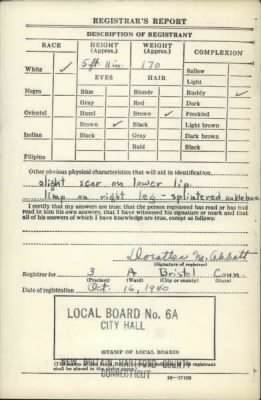 REGISTRAR'S REPORT
DESCRIPTION OF REGISTRANT
RACE HEIGHT (Approx.) WEIGHT (Approx.) COMPLEXION
White ✓ 5 ft 11 in. 170 Sallow
EYES HAIR Light
Negro Blue Blonde Ruddy ✓
Gray Red Dark
Oriental Hazel Brown ✓ Freckled
Brown ✓ Black Light brown
Indian Black Gray Dark brown
Bald Black
Filipino
Other obvious physical characteristics that will aid in identification
slight scar on lower lip
limp on right leg - splintered anklebone
I certify that my answers are true; that the person registered has read or has had
read to him his own answers; that I have witnessed his signature or mark and that
all of his answers of which I have knowledge are true, except as follows:
Dorothy M. Abbott
(Signature of registrar)
Registrar for 3 A Bristol Conn.
(Precinct) (Ward) (City or county) (State)
Date of registration Oct. 16, 1940
LOCAL BOARD NO. 6A
CITY HALL
(STAMP OF LOCAL BOARD)
NEW BRITAIN, HARTFORD COUNTY
CONNECTICUT